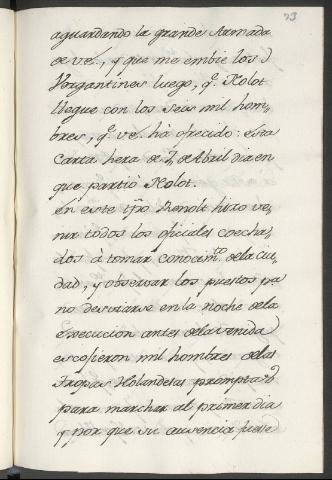 73
aguardando la grande Armada
de ve., y que me embie los
Vergantines luego, q.e Kolot
llegue con los seis mil hom-
bres, q.e ve. hà ofrecido: esta
Carta hera de 7, de Abril dia en
que partiò Kolot.
En este tpõ Benolt hizo ve-
nir todos los oficiales coecha-
dos à tomar conocim.to de la ciu-
dad, y observar los puestos pa
no desviarse en la noche dela
execucion antes dela venida
escojieron mil hombres delas
Tropas Holandesas promptas
para marchar al primer dia
y por que su ausencia fuese